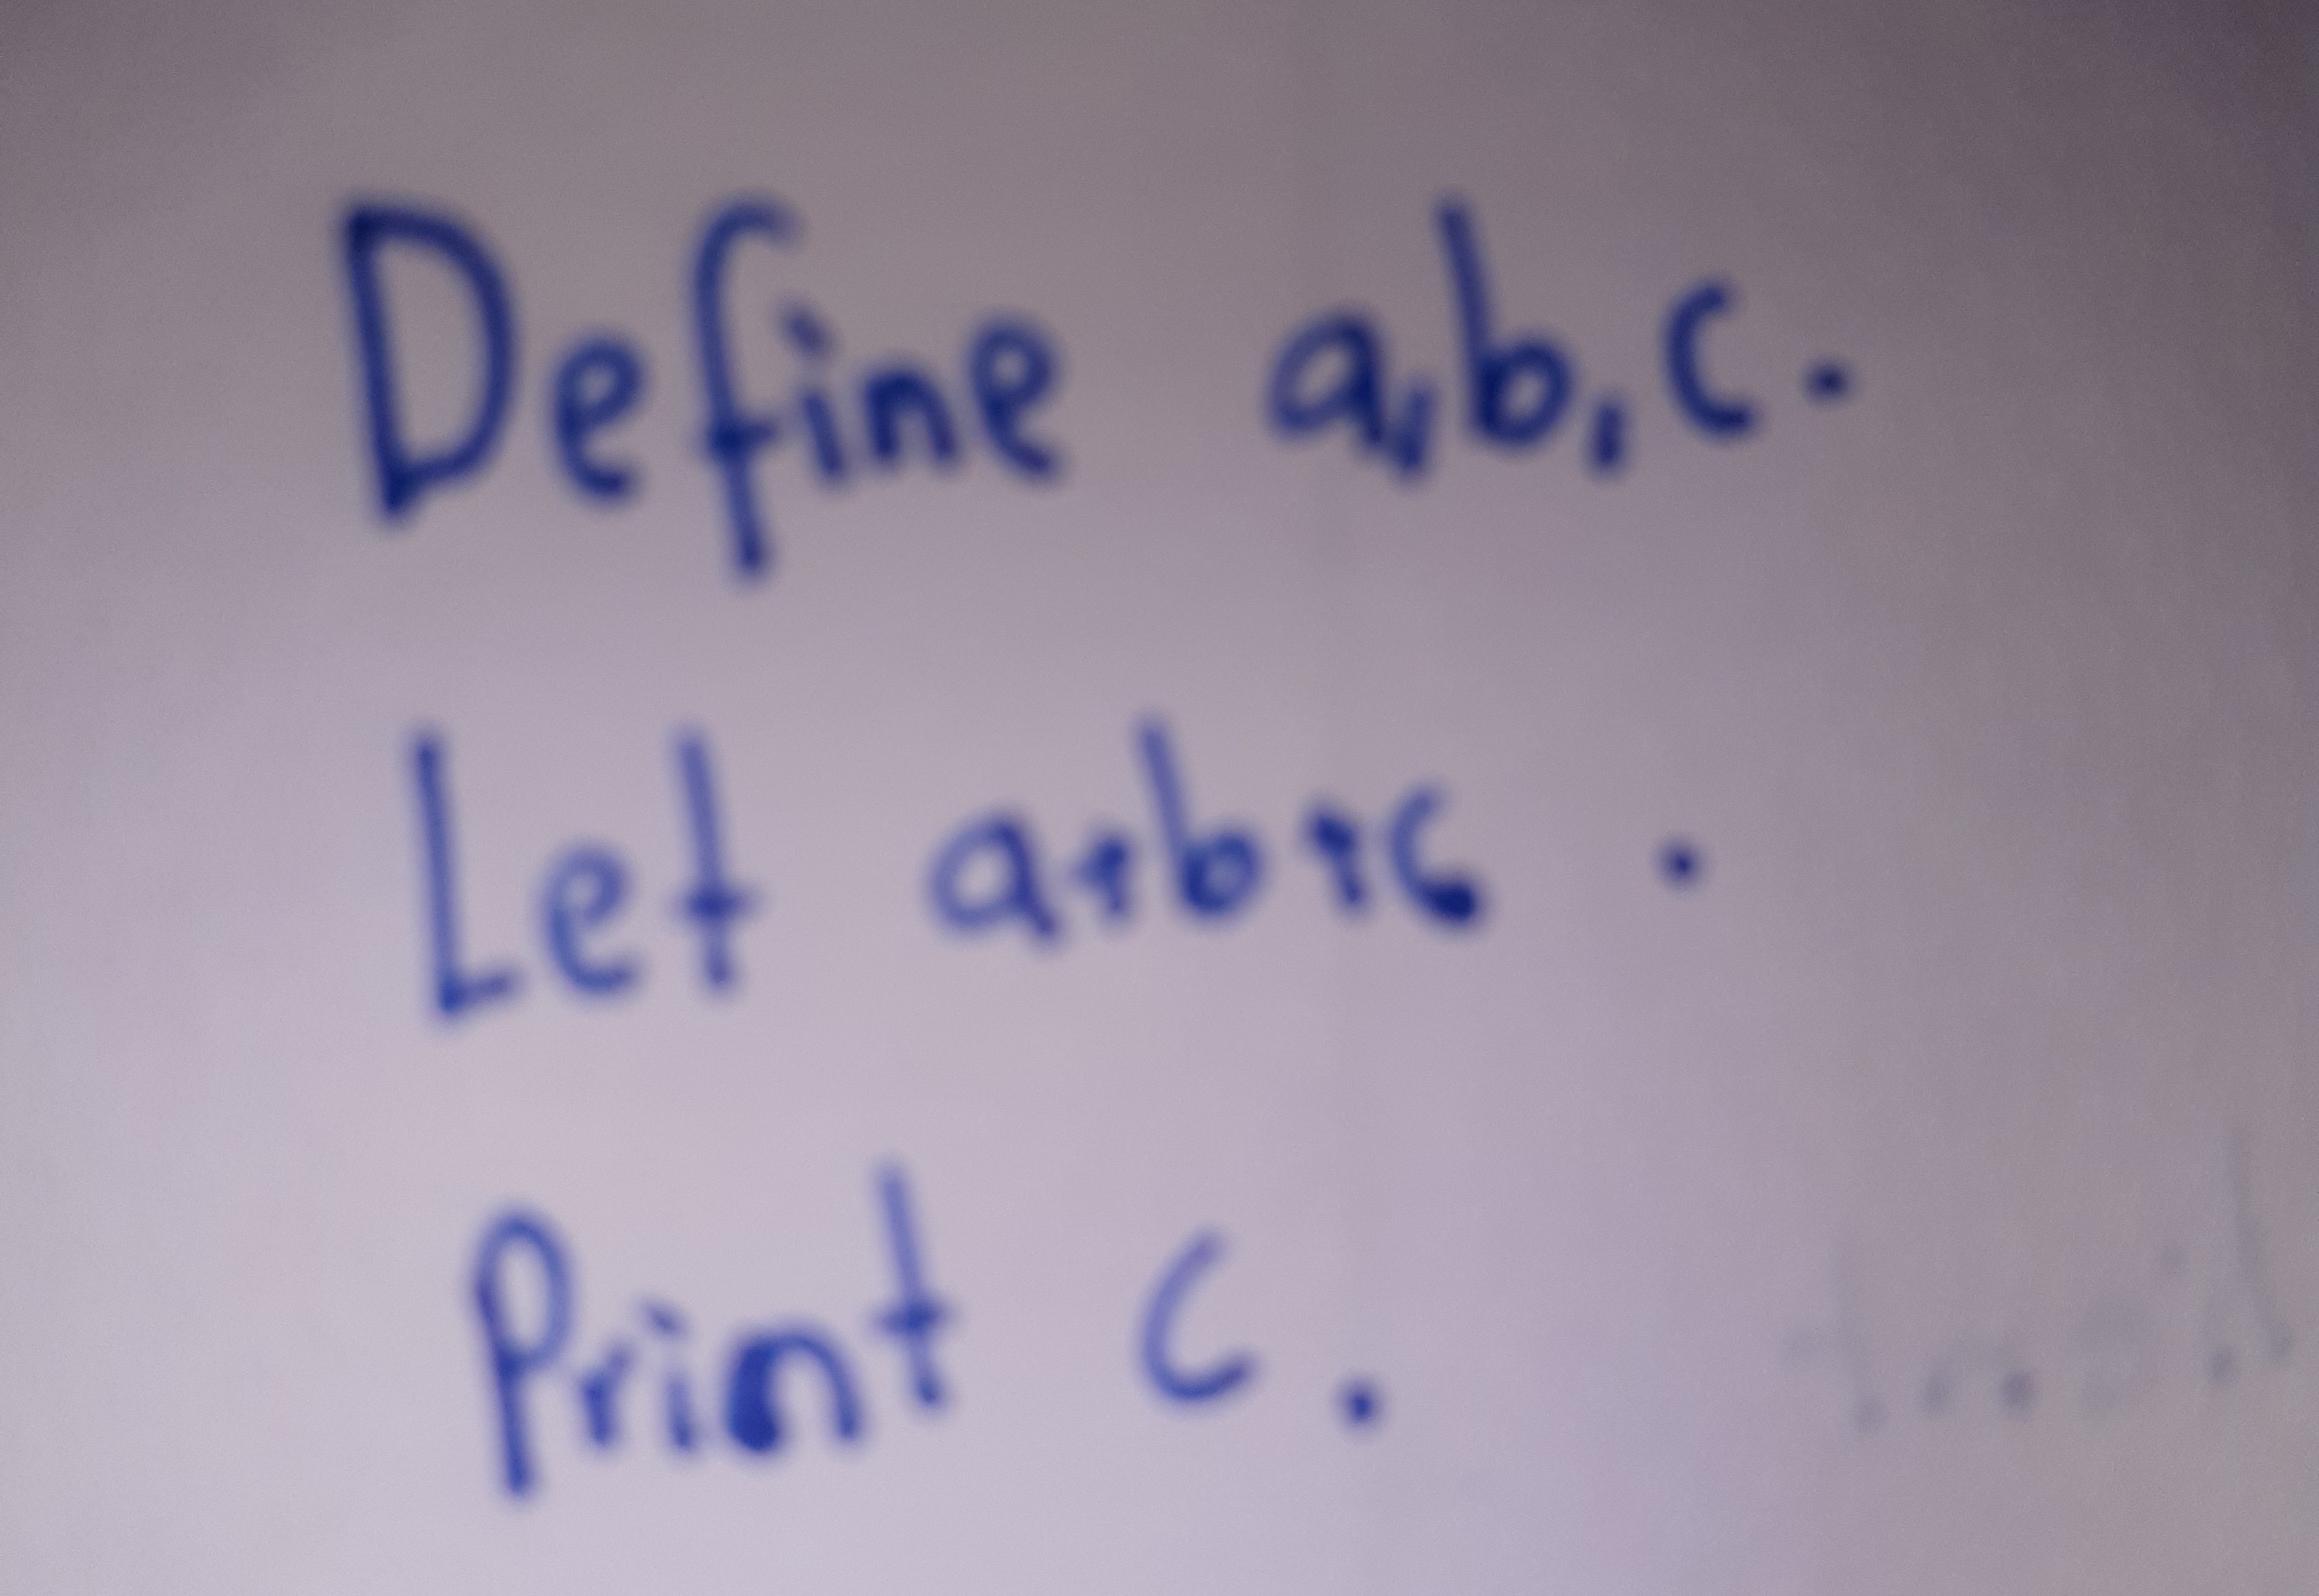 Define a,b,c.
Let a+b+c .
Print c.